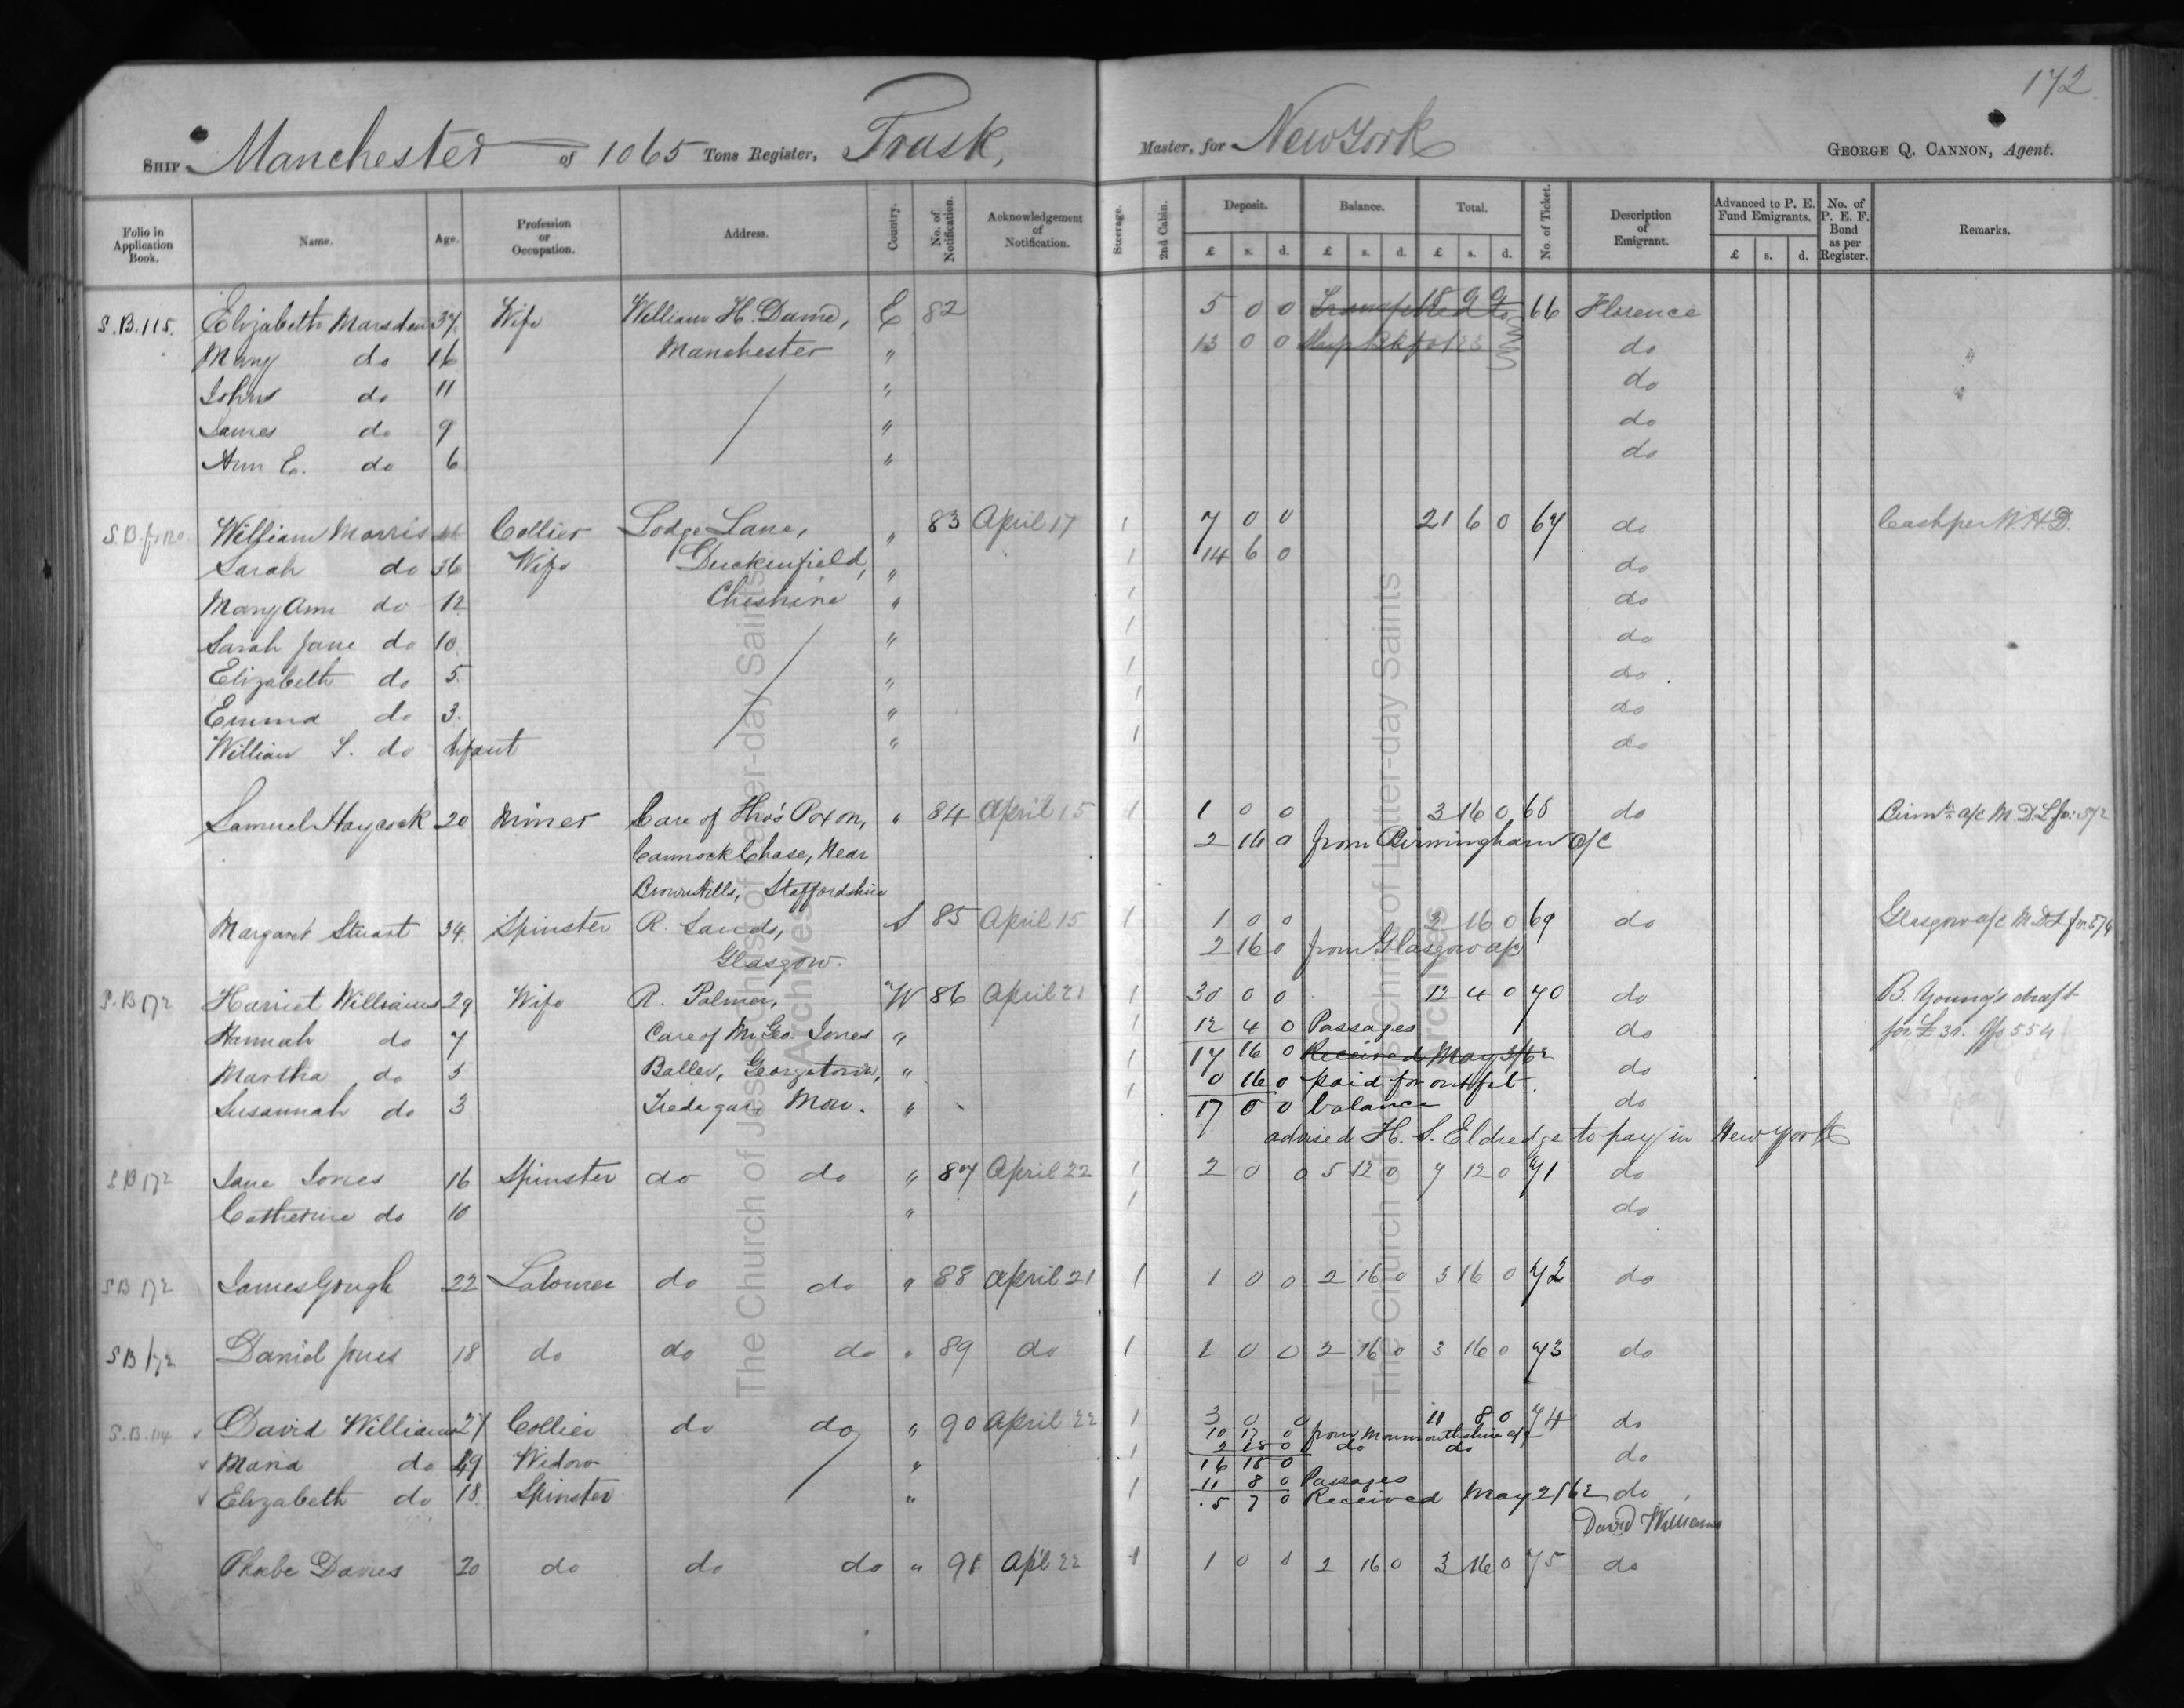 172
Ship Manchester of 1065 Tons Register, Trask, Master, for New York GEORGE Q. CANNON, Agent.
Folio in Application Book. Name. Age. Profession or Occupation. Address. Country. No. of Notification. Acknowledgement of Notification. Steerage. 2nd Cabin. Deposit. £ s. d. Balance. £ s. d. Total. £ s. d. No. of Ticket. Description of Emigrant. Advanced to P. E. Fund Emigrants. £ s. d. No. of P. E. F. Bond as per Register. Remarks.
S.B. 115. Elizabeth Marsden 37 Wife William H. Dame, E 82 5 0 0 66 Florence
Mary do 16 Manchester " 13 0 0 do
John do 11 " do
James do 9 " do
Ann E. do 6 " do
S.B. William Morris Collier Lodge Lane, " 83 April 17 1 7 0 0 21 6 0 67 do Cash per W.H.D.
Sarah do 36 Wife Duckinfield, " 1 14 6 0 do
Mary Ann do 12 Cheshire " 1 do
Sarah Jane do 10 " 1 do
Elizabeth do 5 " 1 do
Emma do 3. " 1 do
William S. do Infant " 1 do
Samuel Haycock 20 Miner Care of Tho's Poxon, " 84 April 15 1 1 0 0 3 16 0 68 do Birmm a/c M.D.L fo:
Cannock Chase, Near 2 16 0 from Birmingham a/c
Brown Hills, Staffordshire
Margaret Stuart 34 Spinster R. Sands, S 85 April 15 1 1 0 0 3 16 0 69 do Glasgow a/c M.D.L fo.
Glasgow. 2 16 0 from Glasgow a/c
S.B 172 Harriet Williams 29 Wife R. Palmer, W 86 April 21 1 30 0 0 12 4 0 70 do B. Young's draft
Hannah do 7 Care of Mr. Geo. Jones " 1 12 4 0 Passages do for £30.
Martha do 5 Georgetown, " 1 17 16 0 Received May 3/62 do
0 16 0 paid for outfit.
Susannah do 3 Tredegar, Mon. " 1 17 0 0 balance do
advised H. S. Eldredge to pay in New York
S B 172 Jane Jones 16 Spinster do do " 87 April 22 1 2 0 0 5 12 0 7 12 0 71 do
Catherine do 10 " 1 do
S B 172 James Gough 22 Labourer do do " 88 April 21 1 1 0 0 2 16 0 3 16 0 72 do
S B 172 Daniel Jones 18 do do do " 89 do 1 1 0 0 2 16 0 3 16 0 73 do
S.B. 114 David Williams 27 Collier do do " 90 April 22 1 3 0 0 11 8 0 74 do
10 17 0 from Monmouthshire a/c
Maria do 49 Widow " 1 2 18 0 do do do
16 15 0
Elizabeth do 18. Spinster " 1 11 8 0 Passages
5 7 0 Received May 2/62 do
David Williams
Phoebe Davies 20 do do do " 91 Apl 22 1 1 0 0 2 16 0 3 16 0 75 do
The Church of Jesus Christ of Latter-day Saints
Archives
The Church of Jesus Christ of Latter-day Saints
Archives